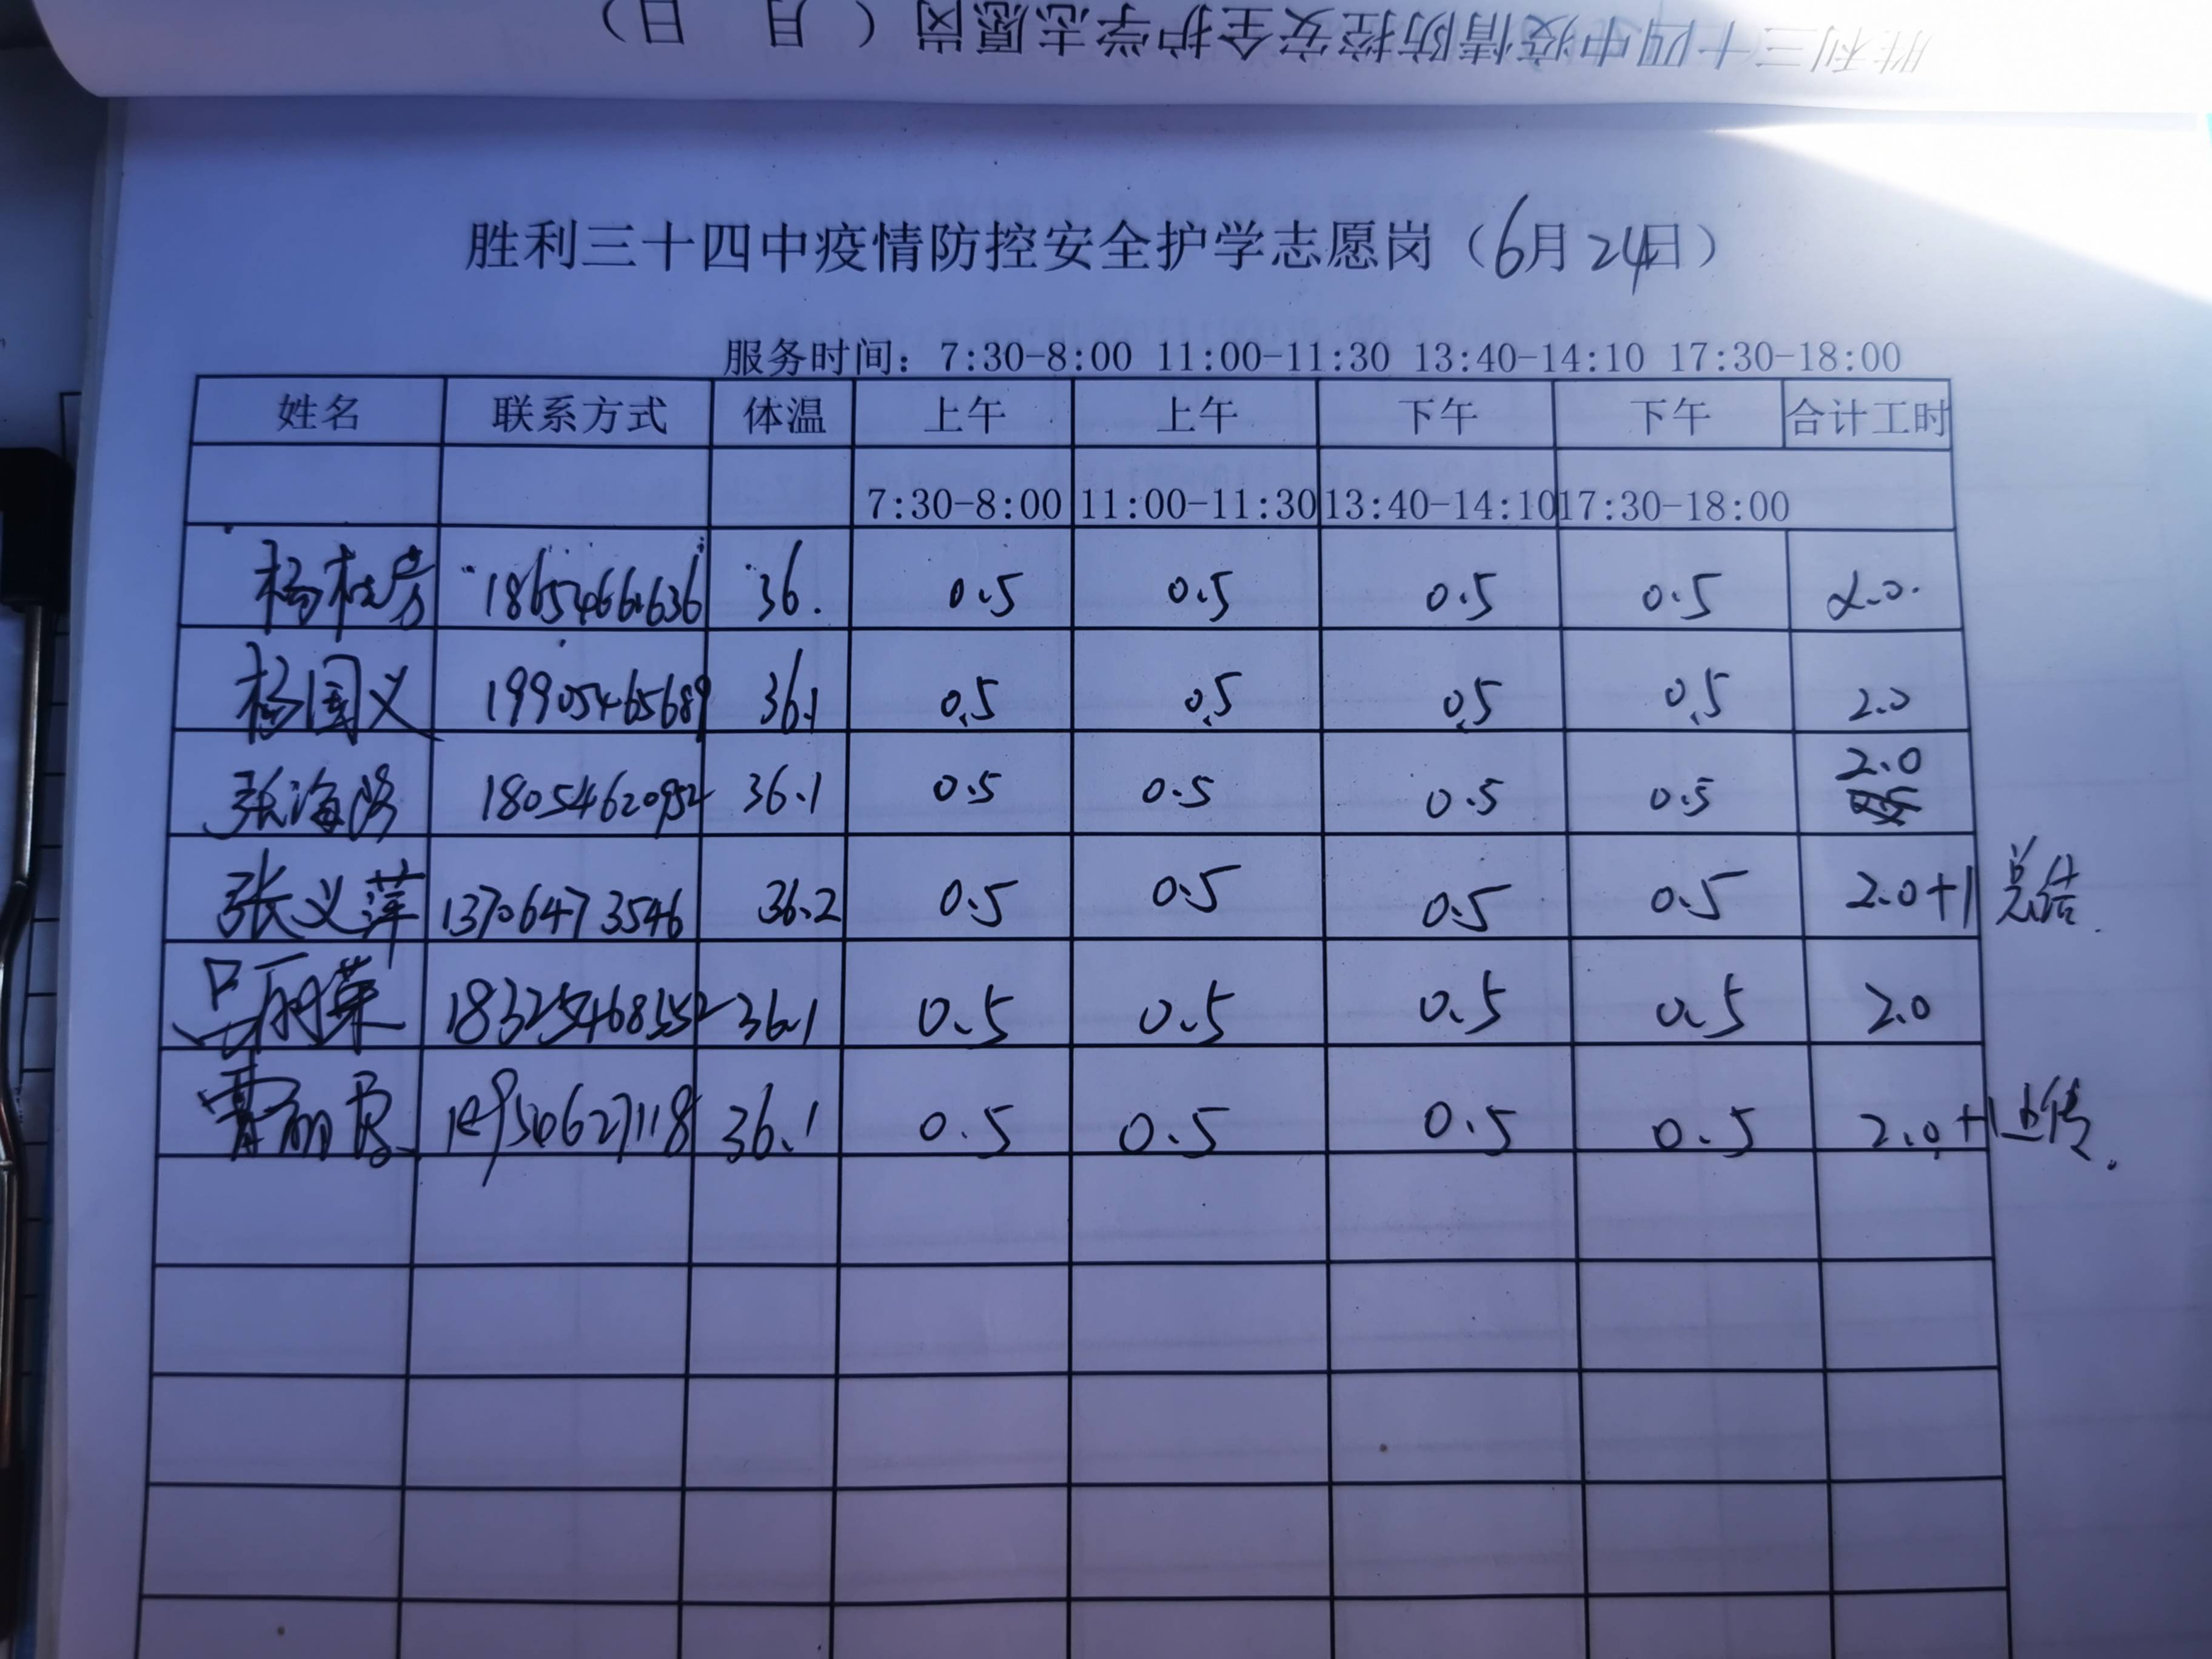 胜利三十四中疫情防控安全护学志愿岗（ 月 日）
胜利三十四中疫情防控安全护学志愿岗（6月24日）
服务时间：7:30-8:00 11:00-11:30 13:40-14:10 17:30-18:00
姓名 联系方式 体温 上午 上午 下午 下午 合计工时
7:30-8:00 11:00-11:30 13:40-14:10 17:30-18:00
36. 0.5 0.5 0.5 0.5 2.0.
杨国义 19905465689 36.1 0.5 0.5 0.5 0.5 2.0
18054620952 36.1 0.5 0.5 0.5 0.5 2.0
张义萍 13706473546 36.2 0.5 0.5 0.5 0.5 2.0+1 总结.
18325468552 36.1 0.5 0.5 0.5 0.5 2.0
36.1 0.5 0.5 0.5 0.5 2.0+1上传.